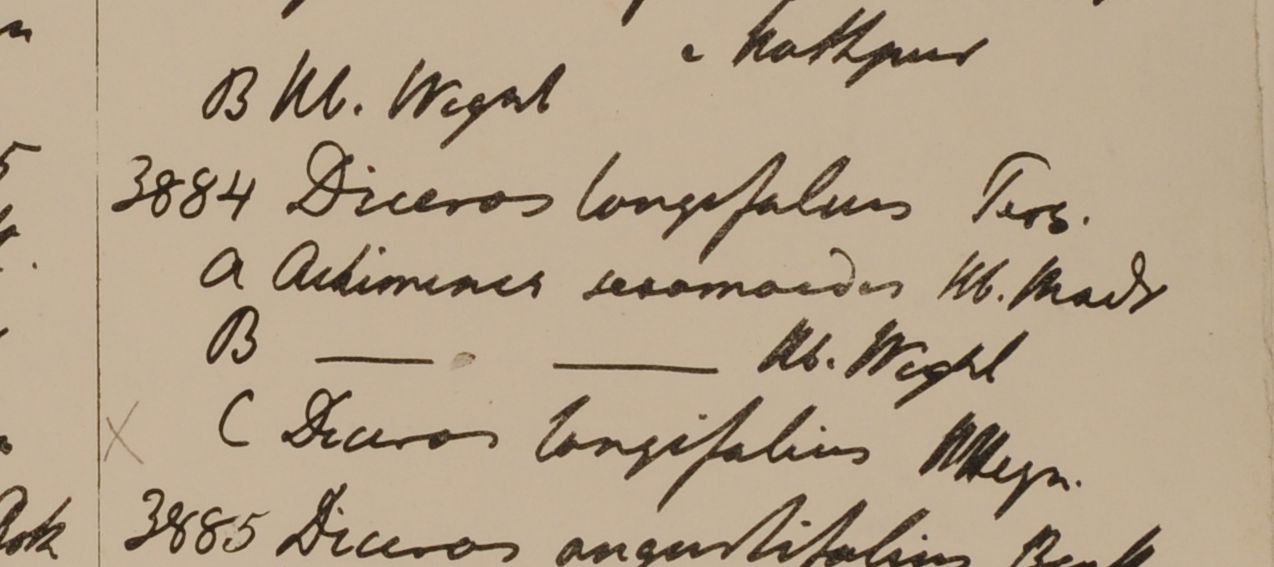 B Hb. Wight
3884 Diceros longifolius Pers.
a Achimenes sesamoides Hb. Madr
B — — Hb. Wight
C Diceros longifolius
3885 Diceros angustifolius Benth